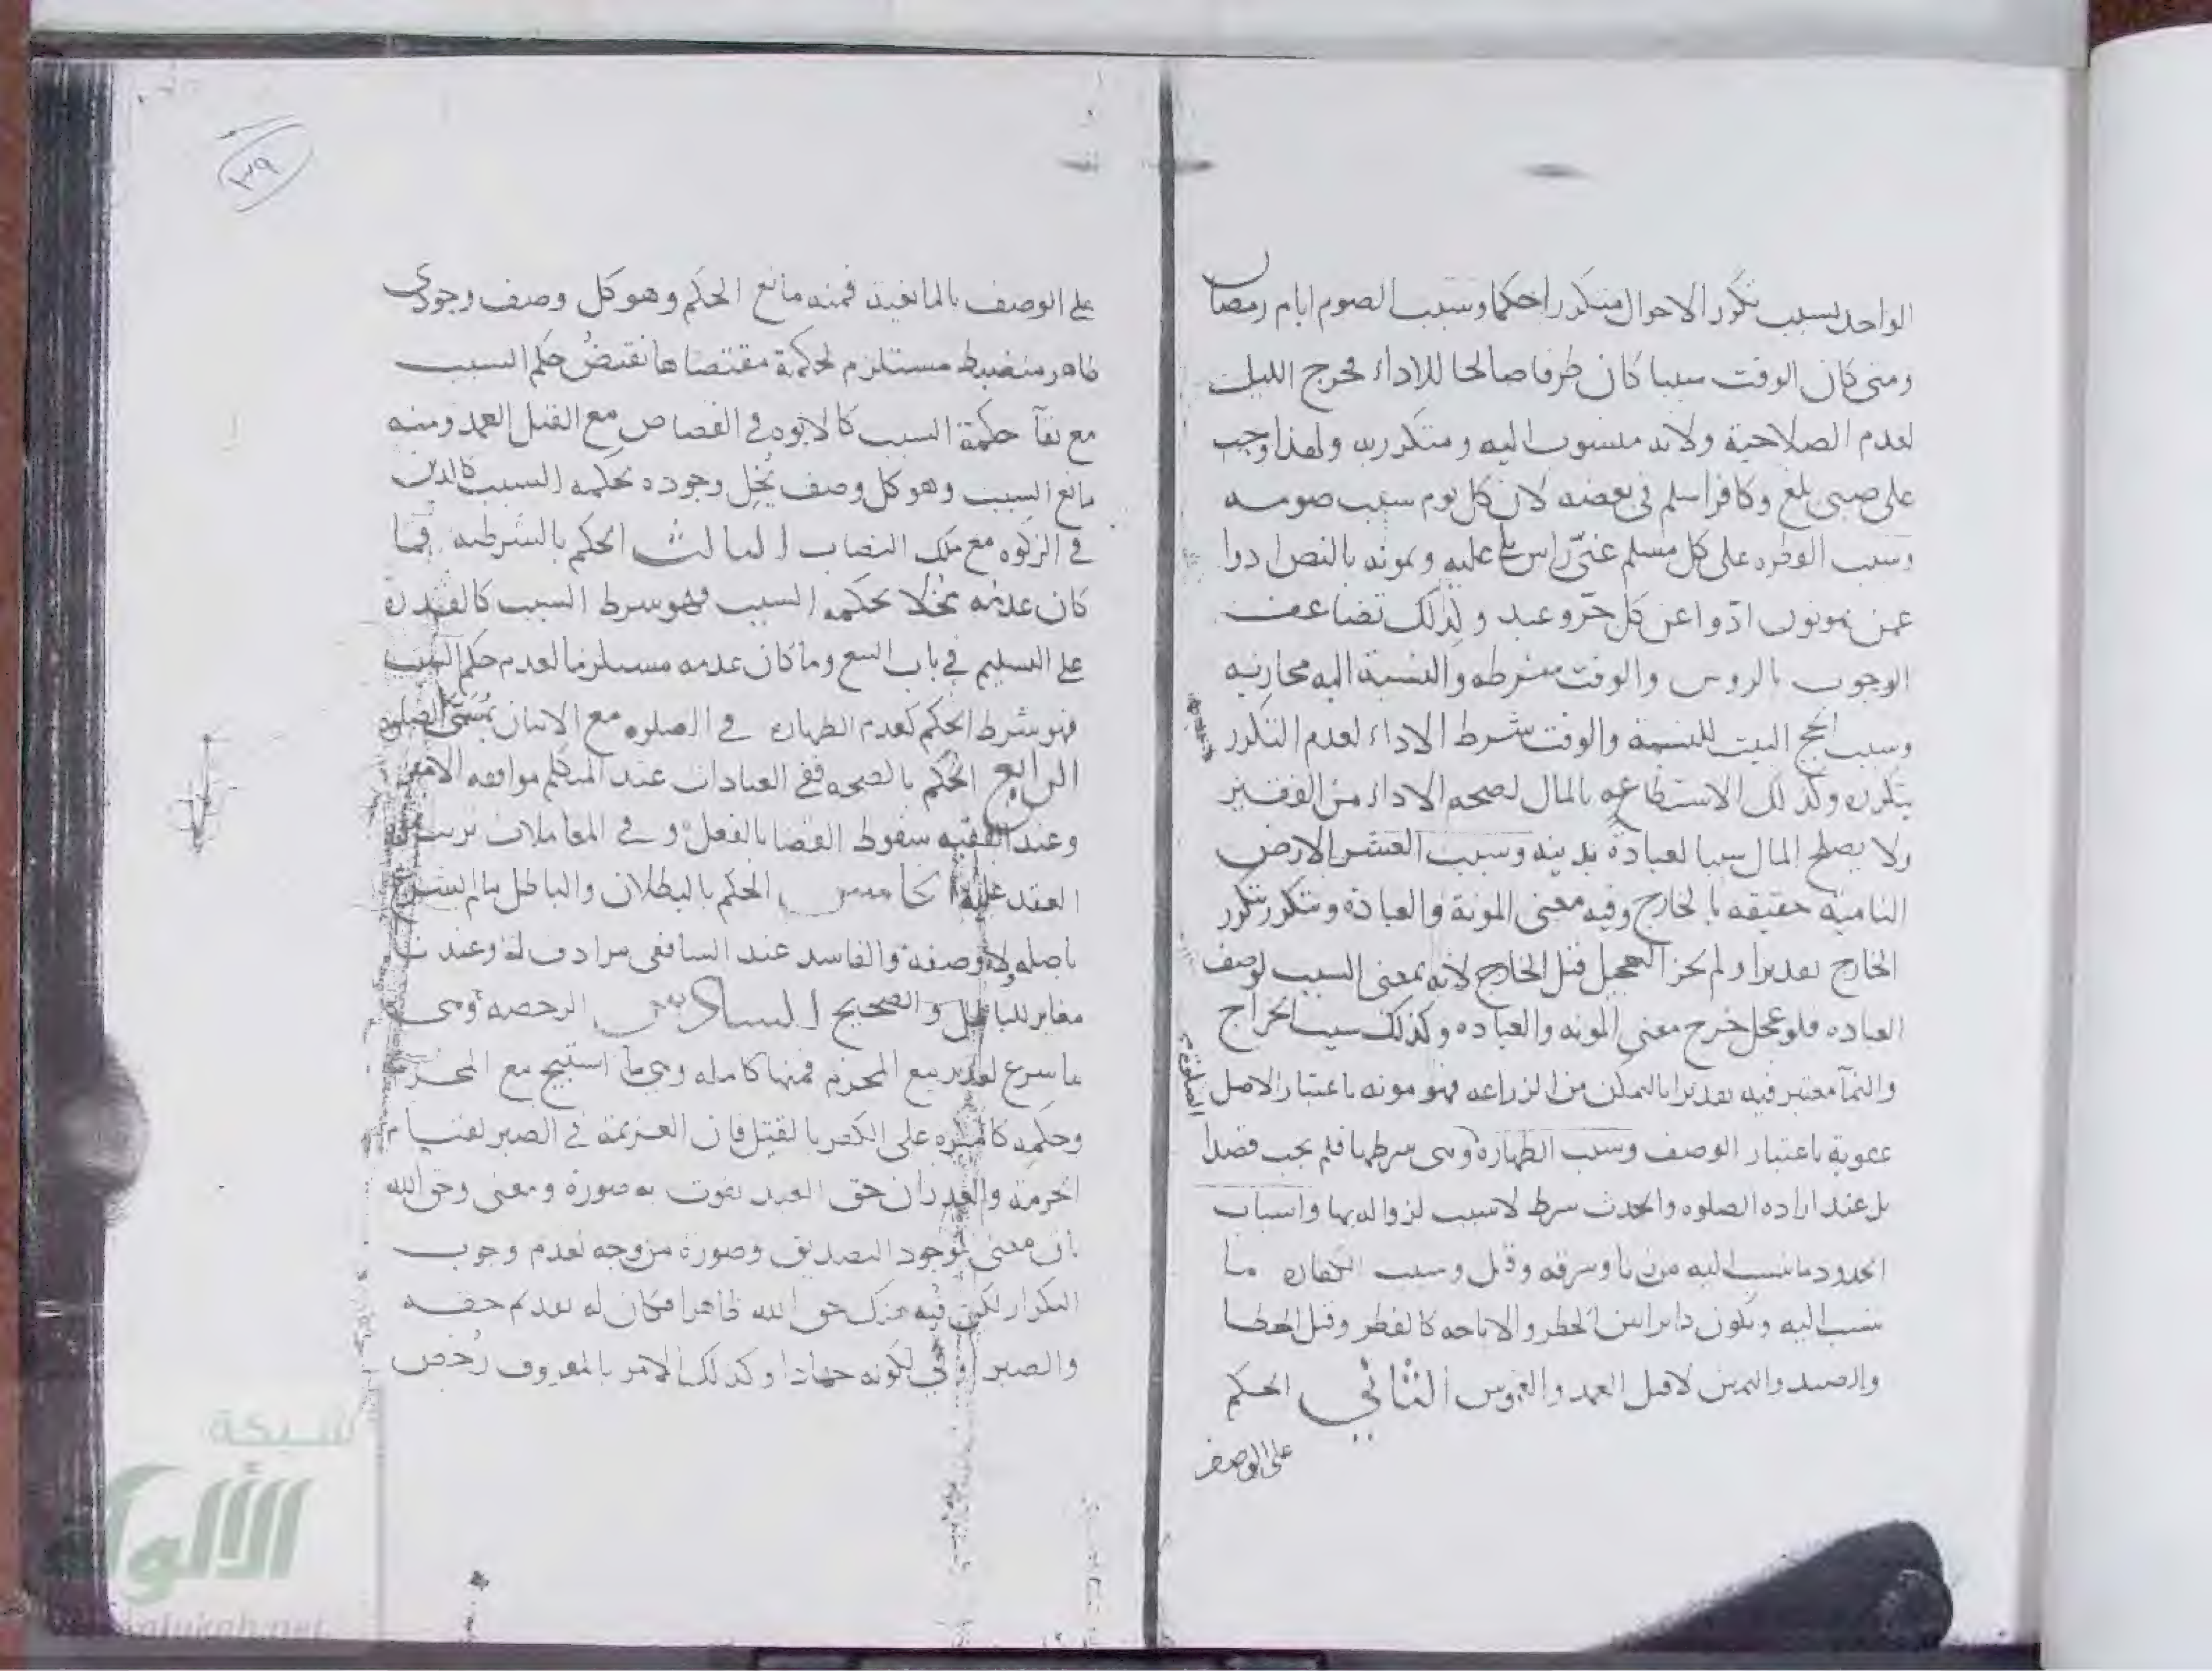 الواحد بسبب تكرر الاحوال متكررا حكما وسبب الصوم ايام رمضان
ومتى كان الوقت سببا كان ظرفا صالحا للاداء فخرج الليل
لعدم الصلاحية ولانه منسوب اليه ومتكرر به ولهذا وجب
على صبى بلغ وكافر اسلم فى بعضه لان كل يوم سبب صومه
وسبب الفطره على كل مسلم غنىّ راس يلى عليه ويمونه بالنص ادوا
عمن تمونون ادّوا عن كل حرّ وعبد ولذلك تضاعف
الوجوب بالروس والوقت شرطه والنسبة اليه مجازيه
وسبب الحج البيت للنسبة والوقت شرط الاداء لعدم التكرر
بتكرره وكذلك الاستطاعه بالمال لصحه الاداء من الفقير
ولا يصلح المال سببا لعبادة بدنيه وسبب العشر الارض
الناميه حقيقه بالخارج وفيه معنى المونة والعبادة ويتكرر بتكرر
الخارج تقديرا ولم يجز التعجيل قبل الخارج لانه بمعنى السبب لوصف
العباده فلو عجل خرج معنى المونه والعباده وكذلك سبب الخراج
والنمآ معتبر فيه تقديرا بالتمكن من الزراعه فهو مونه باعتبار الاصل
عقوبة باعتبار الوصف وسبب الطهارة وهى شرطها فلم يجب قصدا
الصلوة
بل عند اراده الصلوه والحدث شرط لا سبب لزوالها بها واسباب
الحدود ما نسب اليه من زنا وسرقه وقتل وسبب الكفاره ما
نسب اليه ويكون دايرا بين الحظر والاباحه كالفطر وقتل الخطا
والصيد واليمين لا قتل العمد والغموس الثاني الحكم
على الوصف
٣٩
على الوصف بالمانعية فمنه مانع الحكم وهو كل وصف وجودى
ظاهر منضبط مستلزم لحكمة مقتضاها نقيضُ حكم السبب
مع بقآ حكمة السبب كالابوه في القصاص مع القتل العمد ومنه
مانع السبب وهو كل وصف يُخِل وجوده بحكمه السبب كالدين
في الزكوه مع ملك النصاب الثالث الحكم بالشرطيه فما
كان عدمه مخلا بحكمه السبب فهو شرط السبب كالقدره
على التسليم في باب البيع وما كان عدمه مستلزما لعدم حكم السبب
فهو شرط الحكم كعدم الطهاره في الصلوه مع الاتيان بمسمّى الصلوه
الرابع الحكم بالصحه ففى العبادات عند المتكلم موافقه الامر
وعند الفقيه سقوط القضا بالفعل وفي المعاملات ترتب
العقد عليه الخامس الحكم بالبطلان والباطل ما لم يشرع
باصله ولا وصفه والفاسد عند الشافعى مرادف له وعندنا
مغاير للباطل والصحيح السادس الرخصه وهى
ما شرع لعذر مع المحرم فمنها كامله وهى ما استبيح مع المحرم
وحكمه كالمكره على الكفر بالقتل فان العزيمة في الصبر لقيام
الحرمة والعذر ان حق العبد يفوت به صورة ومعنى وحق الله
باق معنى لوجود التصديق وصورة من وجه لعدم وجوب
التكرار لكن فيه هتك حق الله ظاهرا فكان له تقديم حقه
والصبر اولى لكونه جهادا وكذلك الامر بالمعروف رُخص
شبكة
الألوكة
alukah.net